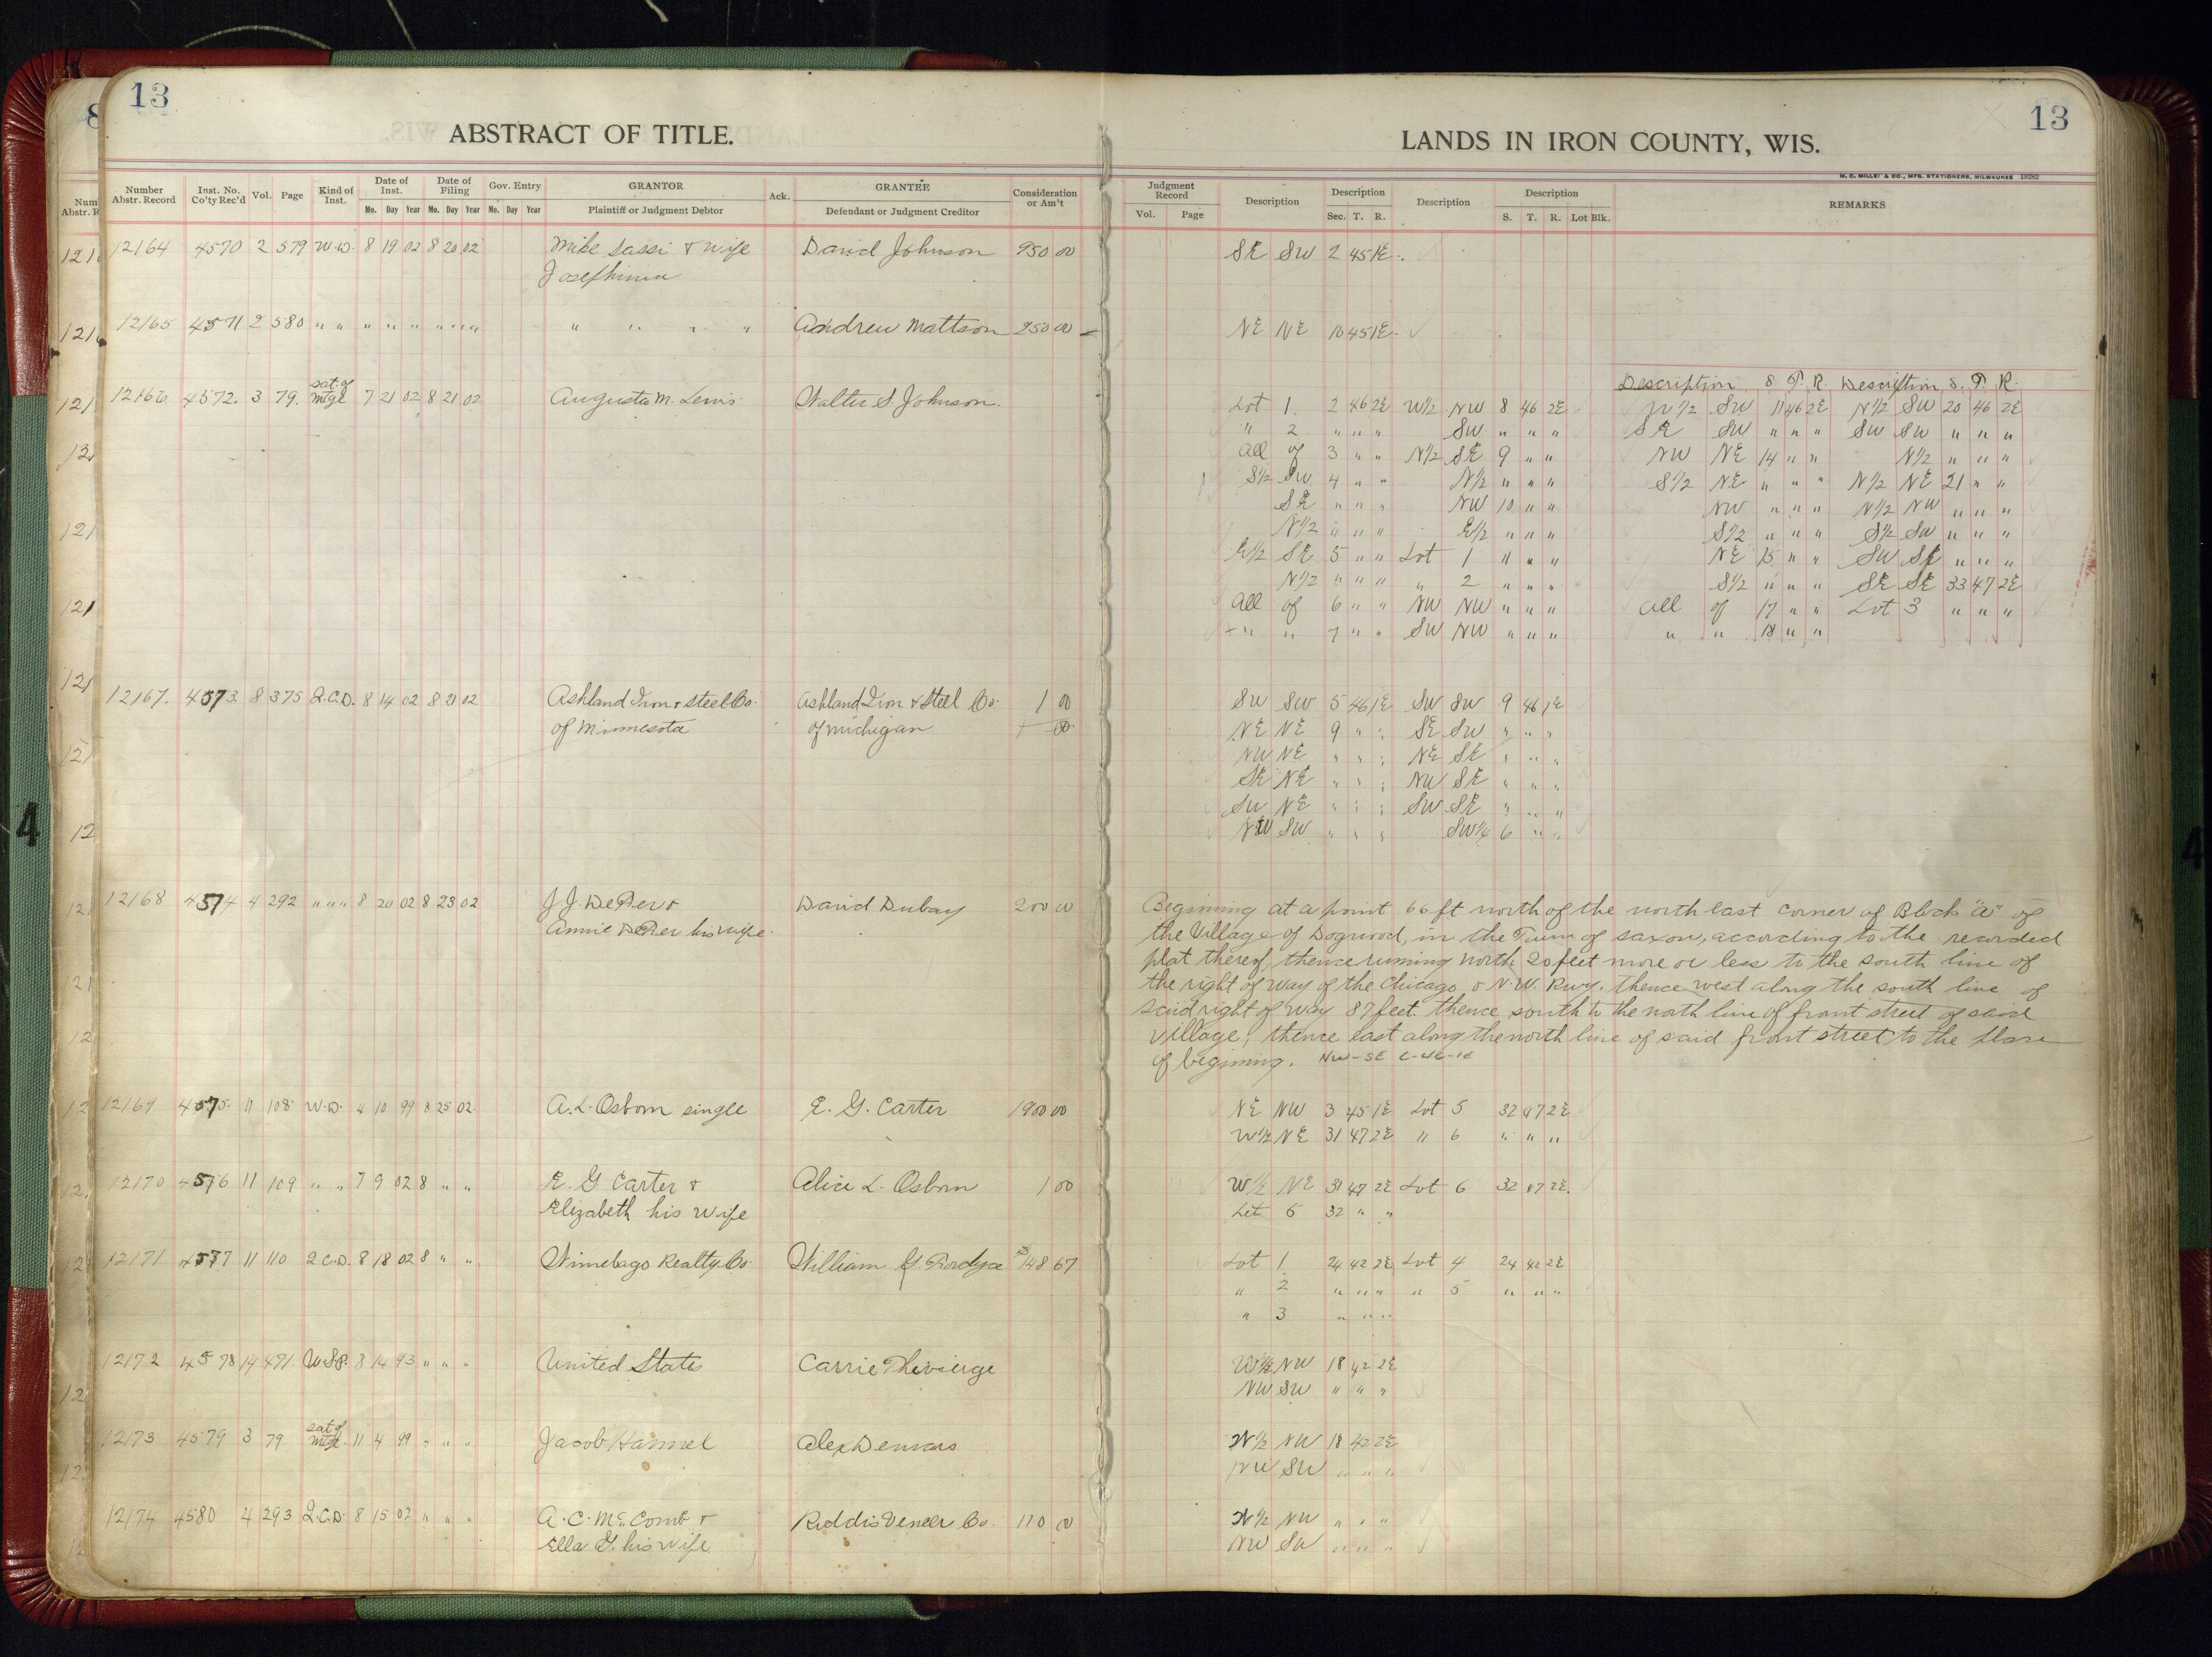 13
ABSTRACT OF TITLE.
Number Abstr. Record Inst. No. Co'ty Rec'd Vol. Page Kind of Inst. Date of Inst. Mo. Day Year Date of Filing Mo. Day Year Gov. Entry Mo. Day Year GRANTOR Plaintiff or Judgment Debtor Ack. GRANTEE Defendant or Judgment Creditor Consideration or Am't
12164 4570 2 579 W.D. 8 19 02 8 20 02 Mike Sassi & wife David Johnson 250 00
12165 4571 2 580 " " " " " " " " " " " " Andrew Mattson 250 00
sat. of
12166 4572. 3 79. mtge 7 21 02 8 21 02 Augusta M. Lewis Walter S. Johnson.
12167. 4573. 8 375 Q.C.D. 8 14 02 8 21 02 Ashland Iron & Steel Co. Ashland Iron & Steel Co. 1 00
of Minnesota of Michigan
12168 4574 4 292 " " " 8 20 02 8 23 02 J.J. DePer & David Dubay 200 00
Annie DePer his wife.
12169 4575. 11 108 W.D. 4 10 99 8 25 02 A.L. Osborn single E. G. Carter 1900 00
12170 4576 11 109 " " 7 9 02 8 " " E. G Carter & Alice L. Osborn 1 00
Elizabeth his wife
12171 4577 11 110 Q.C.D. 8 18 02 8 " " Winnebago Realty Co. William G. 148 67
12172 4578 14 471. U.S.P. 8 14 93 " " " United States Carrie Thevierge
sat of
12173 4579 3 79 mtge. 11 4 99 " " " Jacob Hammel Alex Demars
12174 4580 4 293 Q.C.D. 8 15 02 " " " A.C. McComb & Roddis Veneer Co. 110 00
Ella G. his wife
13
LANDS IN IRON COUNTY, WIS.
H. C. MILLER & CO., MFG. STATIONERS, MILWAUKEE 19282
Judgment Record Vol. Page Description Description Sec. T. R. Description Description S. T. R. Lot Blk. REMARKS
SE SW 2 45 1E
NE NE 10 45 1E
Description S. T. R. Description S. T. R.
Lot 1. 2 46 2E W1/2 NW 8 46 2E W1/2 SW 11 46 2E N1/2 SW 20 46 2E
" 2 " " " SW " " " SE SW " " " SW SW " " "
All of 3 " " N1/2 SE 9 " " NW NE 14 " " N1/2 " " "
S1/2 SW 4 " " N1/2 " " " S1/2 NE " " " N1/2 NE 21 " "
SE " " " NW 10 " " NW " " " N1/2 NW " " "
N1/2 " " " E1/2 " " " S1/2 " " " S1/2 SW " " "
E1/2 SE 5 " " Lot 1 " " " NE 15 " " SW SE " " "
N1/2 " " " " 2 " " " S1/2 " " " SE SE 33 47 2E
All of 6 " " NW NW " " " All of 17 " " Lot 3 " " "
" " 7 " " SW NW " " " " " 18 " "
SW SW 5 46 1E SW SW 9 46 1E
NE NE 9 " " SE SW " " "
NW NE " " " NE SE " " "
SE NE " " " NW SE " " "
SW NE " " " SW SE " " "
NW SW " " " SW1/4 6 " "
Beginning at a point 66 ft north of the north east corner of Block "A" of
the Village of Dogwood, in the Town of Saxon, according to the recorded
plat thereof, thence running north 20 feet more or less to the south line of
the right of way of the Chicago & N.W. Rwy. thence west along the south line of
said right of way 87 feet thence south to the north line of front street of said
village; thence east along the north line of said front street to the place
of begining. NW-SE 6-46-1E
NE NW 3 45 1E Lot 5 32 47 2E
W1/2 NE 31 47 2E " 6 " " "
W1/2 NE 31 47 2E Lot 6 32 47 2E.
Lot 5 32 " "
Lot 1 24 42 2E Lot 4 24 42 2E
" 2 " " " " 5 " " "
" 3 " " "
W1/2 NW 18 42 2E
NW SW " " "
W1/2 NW 18 42 2E
NW SW " " "
W1/2 NW " " "
NW SW " " "
4